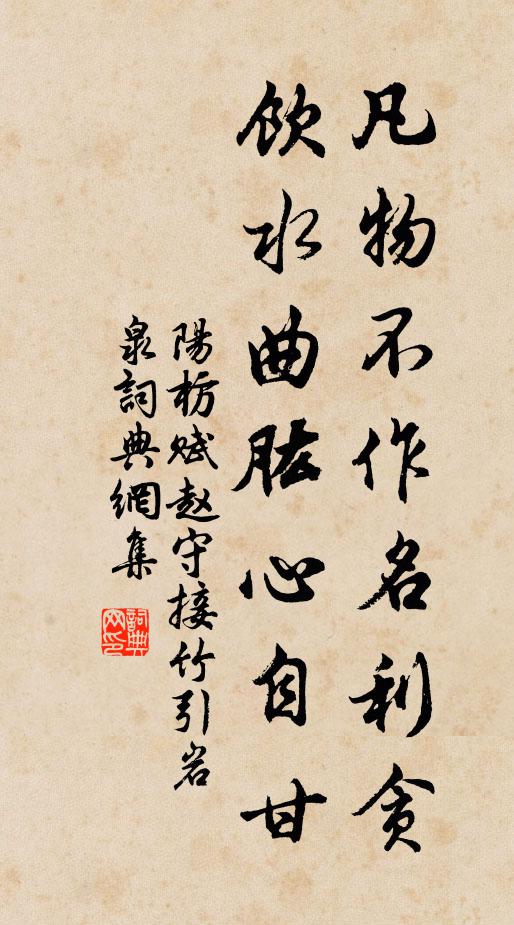 凡物不作名利贪
饮水曲肱心自甘
陽枋赋赵守接竹引岩
泉詞典網集
詞典网印